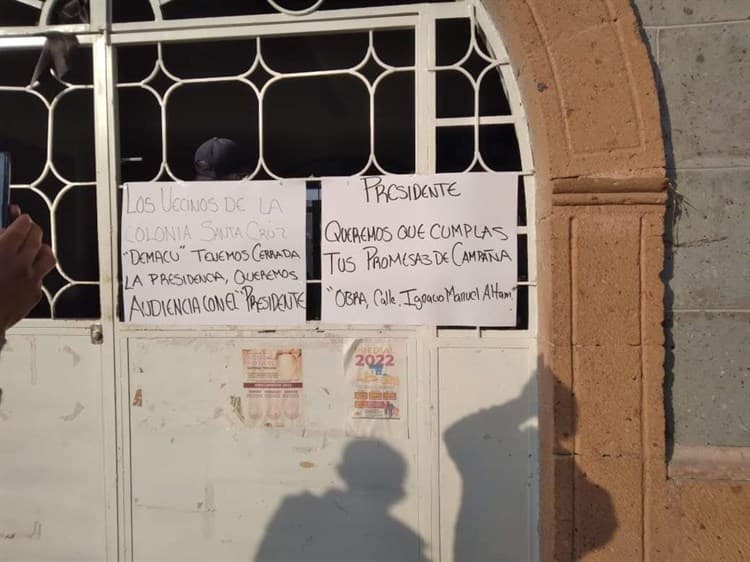 LOS VECINOS DE LA
COLONIA SANTA CRUZ
"DEMACU" TENEMOS CERRADA
LA PRESIDENCIA, QUEREMOS
AUDIENCIA CON EL "PRESIDENTE
PRESIDENTE
QUEREMOS QUE CUMPLAS
TUS PROMESAS DE CAMPAÑA
"OBRA, Calle, Ignacio Manuel Altam"
2022